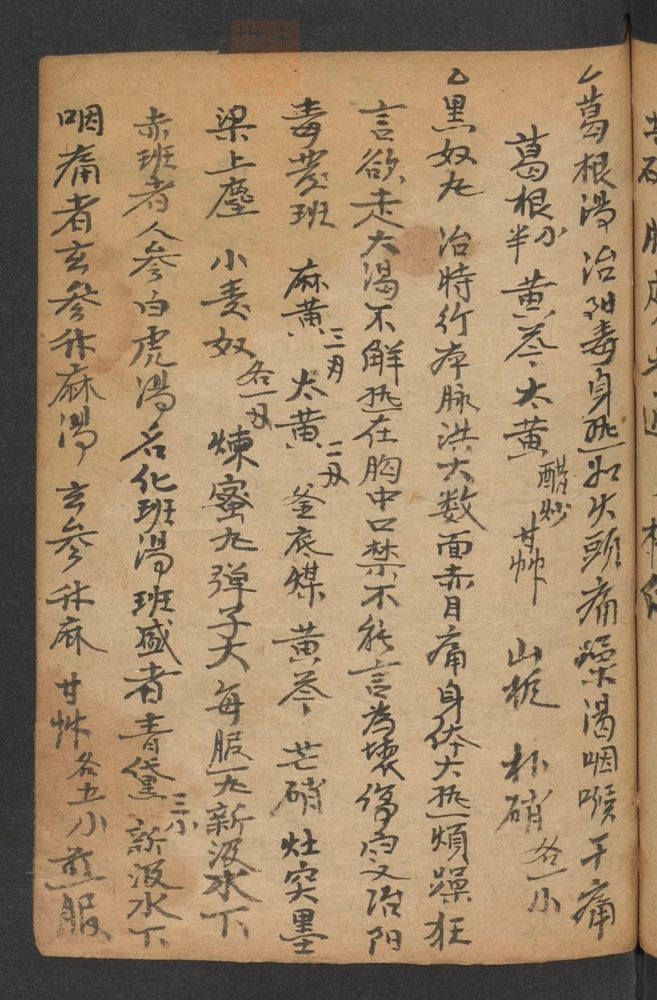 葛根湯治阳毒身热如火頭痛燥渴咽喉干痛
葛根半 黄芩 大黄醋炒 甘艸 山栀 朴硝各一小
黑奴丸 治時行 脉洪大数面赤目痛身体大热煩躁狂
言欲走大渴不解热在胸中口禁不能言為壞傷寒又治阳
毒發班 麻黄三 大黄二 釜底煤 黄芩 芒硝 灶突墨
梁上塵 小麦奴各一 煉蜜丸弹子大每服一丸新汲水下
赤班者人參白虎湯名化班湯班盛者青黛三小新汲水下
咽痛者玄參升麻湯 玄參升麻 甘艸各五小煎服